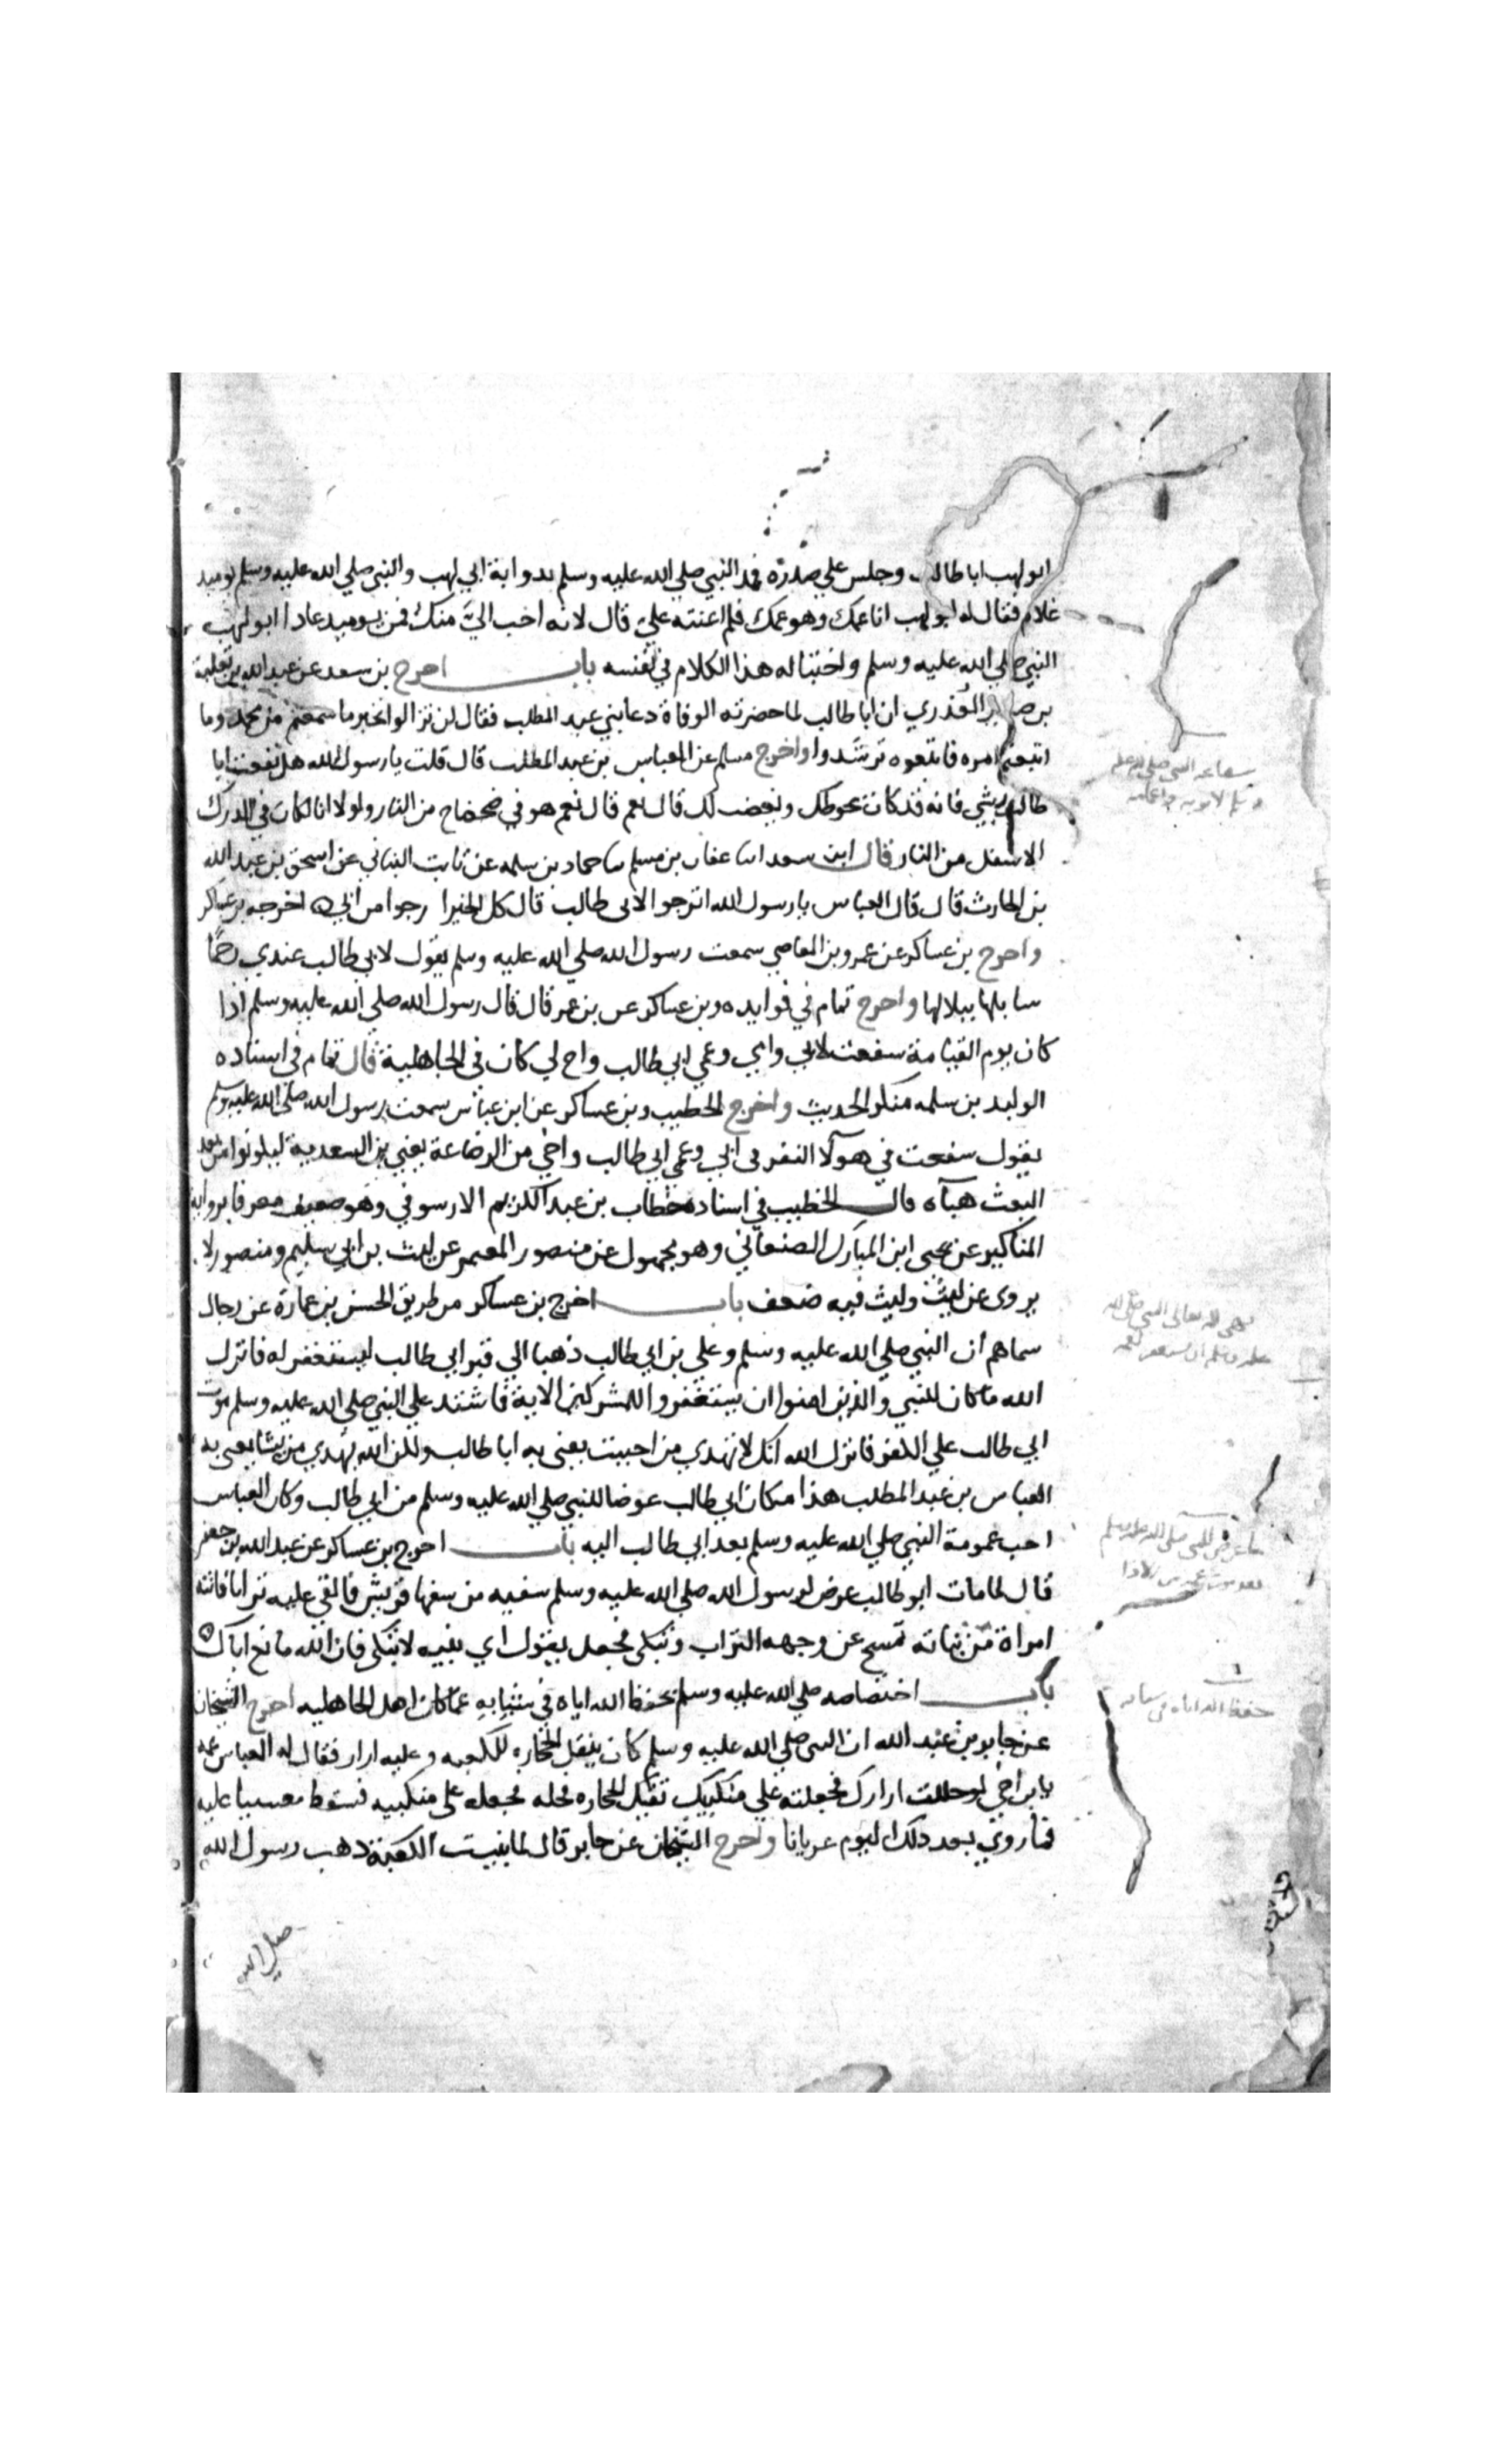 ابو لهب ابا طالب وجلس علي صدره فمد النبي صلي الله عليه وسلم بدوابة ابي لهب والنبي صلي الله عليه وسلم يوميد
غلام فقال له ابو لهب انا عمك وهو عمك فلم اعنته علي قال لانه احب الي منك فمن يوميد عادا ابو لهب
النبي صلي الله عليه وسلم واختباله هذا الكلام في نفسه باب اخرج بن سعد عن عبد الله بن ثعلبة
بن صعير العذري ان ابا طالب لما حضرته الوفاة دعا بني عبد المطلب فقال لن تزالوا بخير ما سمعتم من محمد وما
اتبعتم امره فاتبعوه ترشدوا واخرج مسلم عن العباس بن عبد المطلب قال قلت يا رسول الله هل نفعت ابا
طالب بشي فانه قد كان يحوطك ويغضب لك قال نعم قال نعم هو في ضحضاح من النار ولولا انا لكان في الدرك
الاسفل من النار قال ابن سعد انا عفان بن مسلم سا حماد بن سلمه عن ثابت البناني عن اسحق بن عبد الله
بن الحارث قال قال العباس يا رسول الله اترجوا لابي طالب قال كل الخير ارجوا من ربي اخرجه بن عساكر
واخرج بن عساكر عن عمرو بن العاصي سمعت رسول الله صلي الله عليه وسلم يقول لابي طالب عندي رحما
سابلها ببلالها واخرج تمام في فوايده وبن عساكر عن بن عمر قال قال رسول الله صلي الله عليه وسلم اذا
كان يوم القيامة شفعت لابي وامي وعمي ابي طالب واخ لي كان في الجاهلية قال تمام في اسناده
الوليد بن سلمه منكر الحديث واخرج الخطيب وبن عساكر عن ابن عباس سمعت رسول الله صلي الله عليه وسلم
يقول شفعت في هولا النفر في ابي وعمي ابي طالب واخي من الرضاعة يعني بن السعدية ليكونوا من بعد
البعث هباه قال الخطيب في اسناده خطاب بن عبد الكريم الارسوفي وهو ضعيف معر فا برواية
المناكير عن يحيي ابن المبارك الصنعاني وهو مجهول عن منصور المعتمر عن ليث بن ابي سليم ومنصور لا
يروي عن ليث وليث فيه ضعف باب اخرج بن عساكر من طريق الحسن بن عمارة عن رجال
سماهم ان النبي صلي الله عليه وسلم وعلي بن ابي طالب ذهبا الي قبر ابي طالب ليستغفر له فانزل
الله ما كان للنبي والذين امنوا ان يستغفروا للمشركين الاية فاشتد علي النبي صلي الله عليه وسلم موت
ابي طالب علي الكفر فانزل الله انك لا تهدي من احببت يعني به ابا طالب ولكن الله يهدي من يشا يعني به
العباس بن عبد المطلب هذا مكان ابي طالب عوضا للنبي صلي الله عليه وسلم من ابي طالب وكان العباس
احب عمومة النبي صلي الله عليه وسلم بعد ابي طالب اليه باب اخرج بن عساكر عن عبد الله بن جعفر
قال لما مات ابو طالب عرض لرسول الله صلي الله عليه وسلم سفيه من سفها قريش فالقي عليه ترابا فاتته
امراة من بناته تمسح عن وجهه التراب وتبكي فجعل يقول اي بنيه لا تبكي فان الله مانع اباك
باب اختصاصه صلي الله عليه وسلم بحفظ الله اياه في شبابه عما كان اهل الجاهليه اخرج الشيخان
عن جابر بن عبد الله ان النبي صلي الله عليه وسلم كان ينقل الحجاره للكعبه وعليه ازار فقال له العباس عمه
يا بن اخي لو حللت ازارك فجعلته علي منكبيك تقيك الحجاره فحله فجعله على منكبيه فسقط مغشيا عليه
فما روي بعد ذلك اليوم عريانا واخرج الشيخان عن جابر قال لما بنيت الكعبة ذهب رسول الله
صلي الله
شفاعة النبي صلي الله عليه
وسلم لابويه واعمامه
نهي الله تعالى النبي صلي الله
عليه وسلم ان يستغفر لعمه
ما عرض للنبي صلى الله عليه وسلم
بعد موت عمه من الاذا
حفظ الله اياه في شبابه